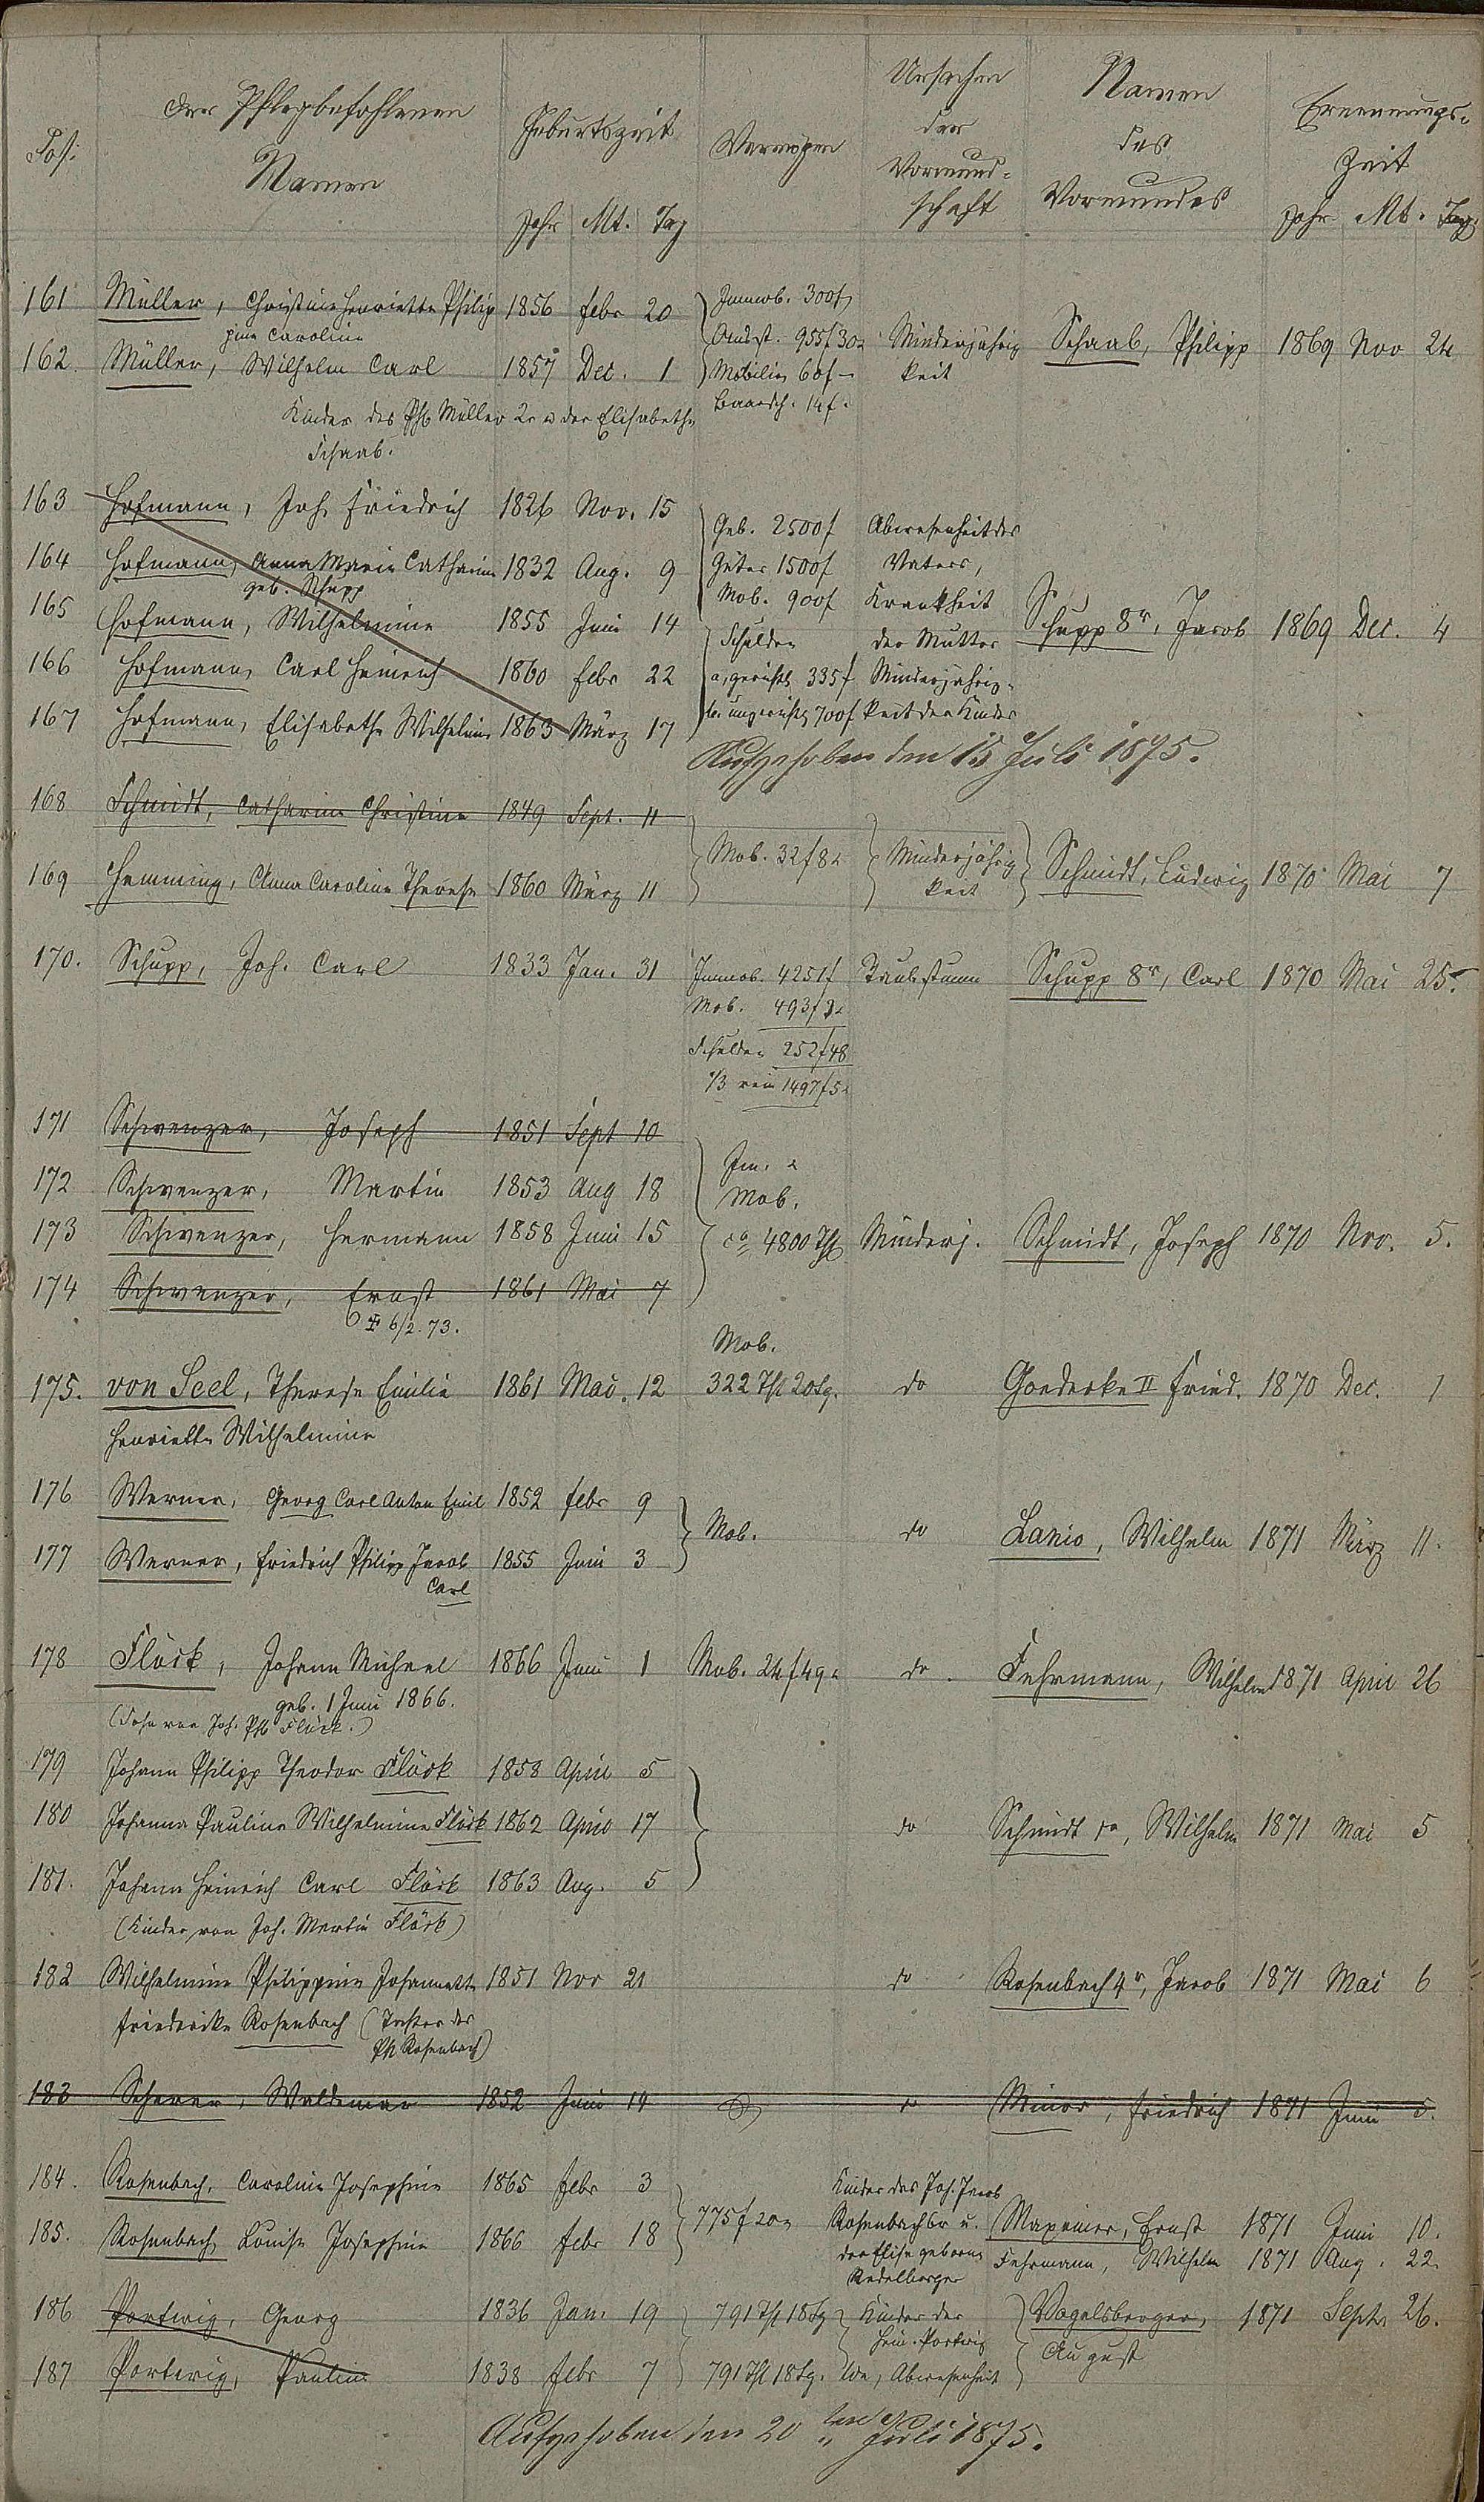 Pos:
Der Pflegbefohlenen
Namen
Geburtszeit
Jahr Mt. Tag
Vermögen
Ursachen
der
Vormund-
schaft
Namen
des
Vormundes
Ernennungs-
Zeit
Jahr Mt. Tag
161 Müller, Christine Henriette Philip 1856 Febr 20
pine Caroline
162. Müller, Wilhelm Carl 1857 Dec. 1
Kinder des Ph Müller 2r u der Elisabethe
Schaab.
Immob. 300 f
Ausst. 955 f 30 x
Mobilien 60 f –
Baarsch. 14 f.
Minderjährig
keit
Schaab, Philipp 1869 Nov 24
163 Hofmann, Joh. Friedrich 1826 Nov. 15
164 Hofmann, Anna Marie Catharine 1832 Aug. 9
geb. Schupp
165 Hofmann, Wilhelmine 1855 Juni 14
166 Hofmann, Carl Heinrich 1860 Febr 22
167 Hofmann, Elisabethe Wilhelmine 1863 März 17
Geb. 2500 f
Güter 1500 f
Mob. 900 f
Schulden
a, gerichtl 335 f
b. ungerichtl 700 f
Abwesenheit des
Vaters,
Krankheit
der Mutter
Minderjährig-
keit der Kinder
Schupp 8r, Jacob 1869 Dec. 4
Aufgehoben den 15 Juli 1875.
168 Schmidt, Catharine Christine 1849 Sept. 11
169 Hemming, Anna Caroline Therese 1860 März 11
Mob. 32 f 8 x
Minderjährig
keit
Schmidt, Ludwig 1870 Mai 7
170. Schupp, Joh. Carl 1833 Jan. 31 Immob. 4251 f Taubstumm Schupp 8r, Carl 1870 Mai 25.
Mob. 493 f 3 x
Schulden 252 f 48
1/3 rein 1497 f 5 x
171 Schwenzer, Joseph 1851 Sept 10
172 Schwenzer, Martin 1853 Aug 18
173 Schwenzer, Hermann 1858 Juni 15
174 Schwenzer, Ernst 1861 Mai 7
6/2. 73.
Im. u
Mob.
ca 4800 Thl Minderj. Schmidt, Joseph 1870 Nov. 5.
Mob.
175. von Seel, Therese Emilie 1861 Mai 12 322 Thl 20 Sg. do Goedecke II Fried. 1870 Dec. 1
Henriette Wilhelmine
176 Werner, Georg Carl Anton Emil 1852 Febr 9
177 Werner, Friedrich Philipp Jacob 1855 Juni 3
Carl
Mob. do Lanio, Wilhelm 1871 März 11.
178 Flöck, Johann Michael 1866 Juni 1 Mob. 24 f 49 x do. Fuhrmann, Wilhelm 1871 April 26
geb. 1 Juni 1866.
(Sohn von Joh. Ph Flöck.)
179 Johann Philipp Theodor Flöck 1858 April 5
180 Johanna Pauline Wilhelmine Flöck 1862 April 17 do Schmidt, Wilhelm 1871 Mai 5
181. Johann Heinrich Carl Flöck 1863 Aug. 5
(Kinder von Joh. Martin Flöck)
182 Wilhelmine Philippine Johannette 1851 Nov 21 do Rosenbach 4r, Jacob 1871 Mai 6
Friederike Rosenbach (Tochter des
Ph Rosenbach)
183 Scherer, Waldemar 1852 Juni 14 Minor, Friedrich 1871 Juni 5.
184. Rosenbach, Caroline Josephine 1865 Febr 3
185. Rosenbach, Louise Josephine 1866 Febr 18
775 f 20 x
Kinder des Joh. Jacob
Rosenbach 6r u.
der Elise geborne
Maxeiner, Ernst 1871 Juni 10.
Fuhrmann, Wilhelm 1871 Aug. 22.
186 Portwig, Georg 1836 Jan. 19 791 Thl 18 Sg Kinder der
Hein. Portwig
187 Portwig, Pauline 1838 Febr 7 791 Thl 18 Sg. We, Abwesenheit
Vogelsberger, 1871 Septr 26.
August
Aufgehoben den 20 ten Juli 1875.